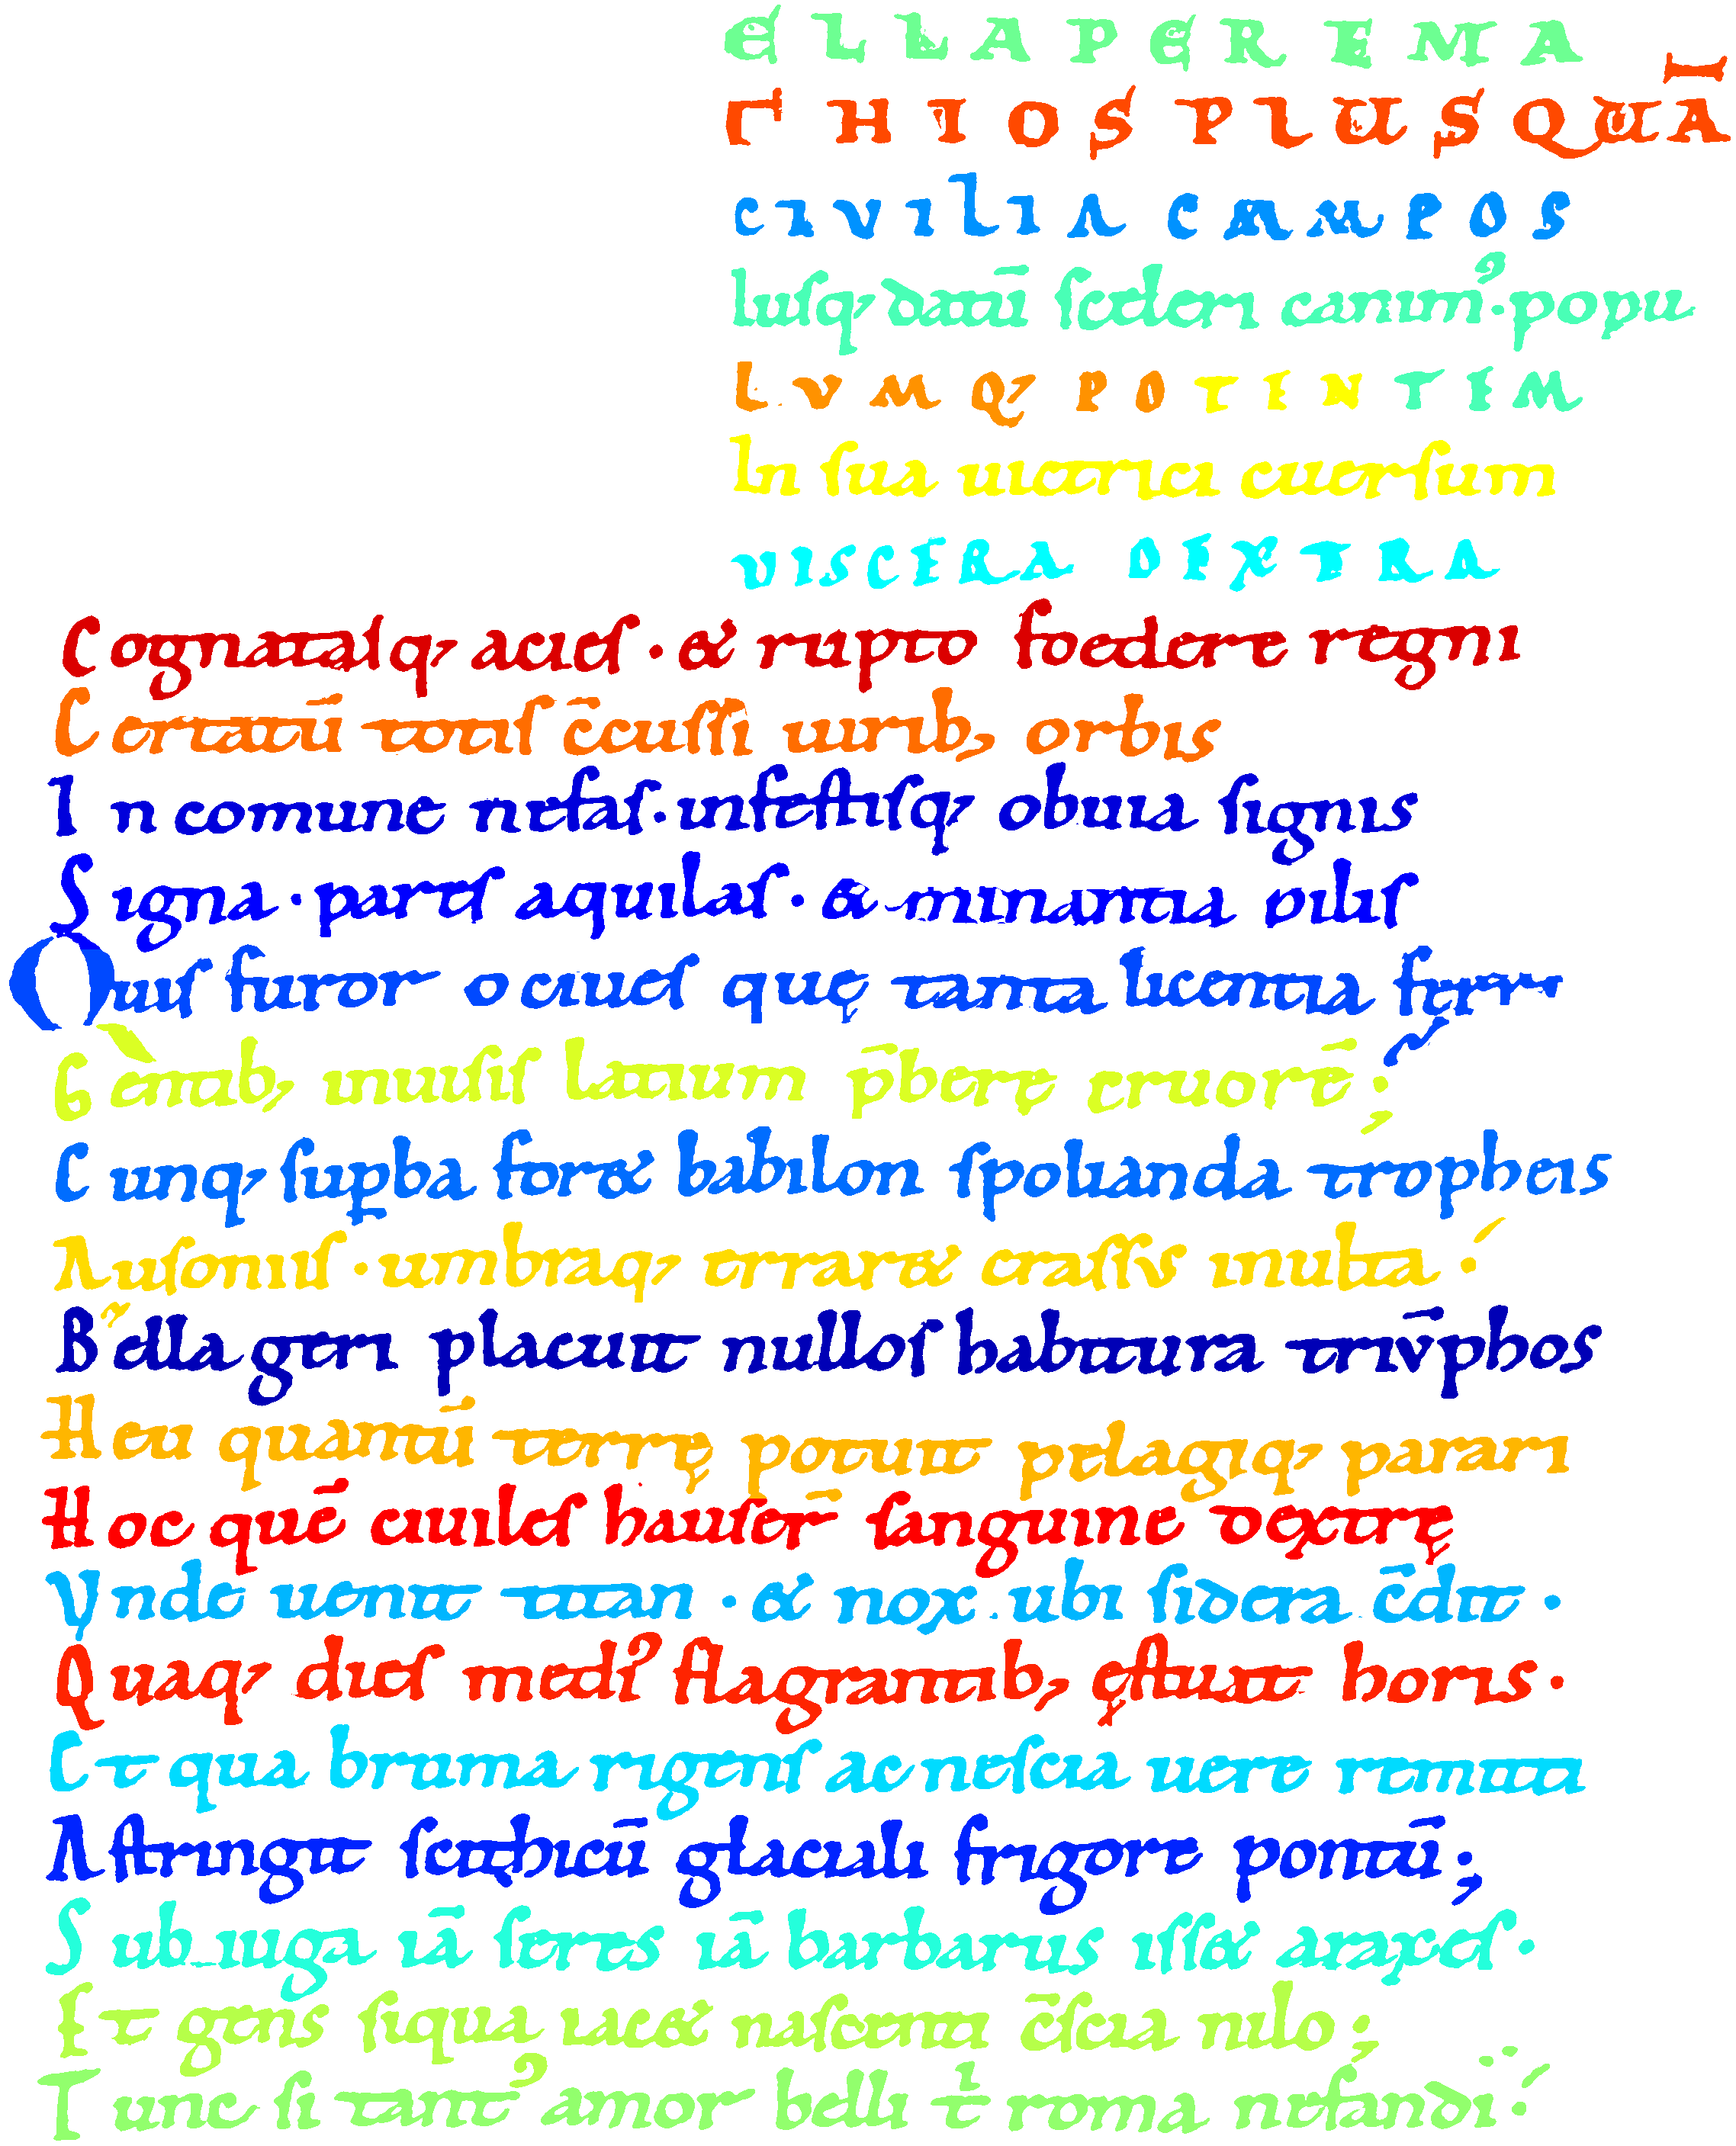 ELLA PER EMA
THIOS PLUSQUĀ
CIVILIA CAMPOS
Iuſq; datū ſceleri canim᾽· popu
LVMQ; POTENTEM
In ſua uictrici cuerſum
VISCERA DEXTRA
Cognataſq; acieſ · & rupto foedere regni
Certatū totiſ c̄cuſſi uirib; orbis
In comune nefaſ · infeſtiſq; obuia ſignis
Signa · pareſ aquilaſ · & minantia piliſ
Quiſ furor o ciueſ quę tanta licentia ferri
Gentib; inuiſiſ latium p̄bere cruorē;
Cunq; ſuꝑba foret babilon ſpolianda tropheis
Auſoniiſ · umbraq; erraret craſſus inulta:
Bella geri placuit nulloſ habitura triūphos
Heu quantū terrę potuit pelagiq; parari
Hoc quē ciuileſ hauſer̄ ſanguine dextrę
Vnde uenit titan · & nox ubi ſidera c̄dit ·
Quaq; dieſ medi᾽ flagrantib; ęſtuat horis ·
Et qua bruma rigenſ ac neſcia uere remitti
Aſtringit ſcithicū glaciali frigore pontū;
Sub iuga iā ſeres iā barbarus iſſet araxeſ ·
Et gens ſiqua iacet naſcenti c̄ſcia nilo;
Tunc ſi tant᾽ amor belli t roma nefandi: